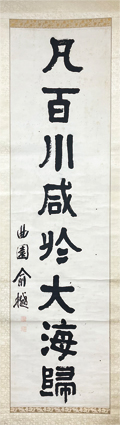 凡百川咸於大海歸
曲園俞樾